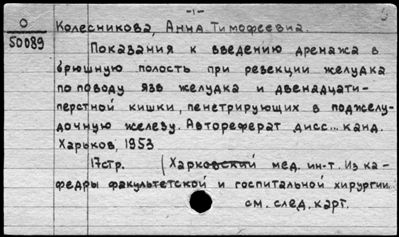 -1-
О
50089
Колесникова, Анна Тимофеевна.
Показания к введению дренажа в
брюшную полость при резекции желудка
по поводу язв желудка и двенадцати-
перстной кишки, пенетрирующих в поджелу-
дочную железу. Автореферат дисс... канд.
Харьков, 1953
17стр. (Харковский мед. ин-т. Из ка-
федры факультетской и госпитальной хирургии.
см. след. карт.